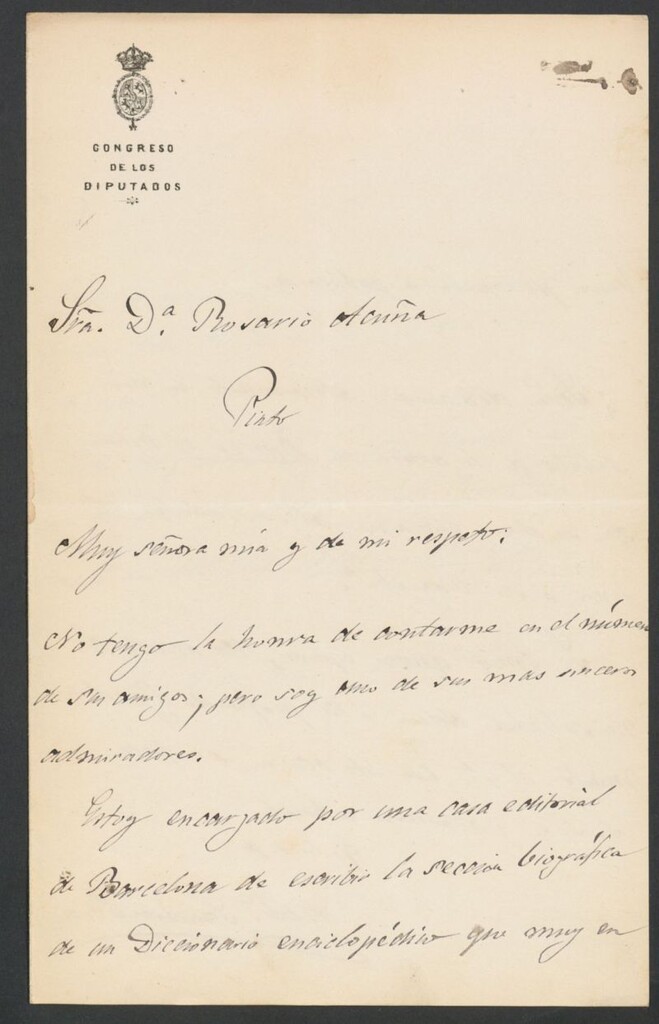 CONGRESO
DE LOS
DIPUTADOS
Sra. Dª. Rosario Acuña
Pinto
Muy señora mia y de mi respeto:
No tengo la honra de contarme en el número
de sus amigos; pero soy uno de sus mas sinceros
admiradores.
Estoy encargado por una casa editorial
de Barcelona de escribir la seccion biográfica
de un Diccionario enciclopédico que muy en